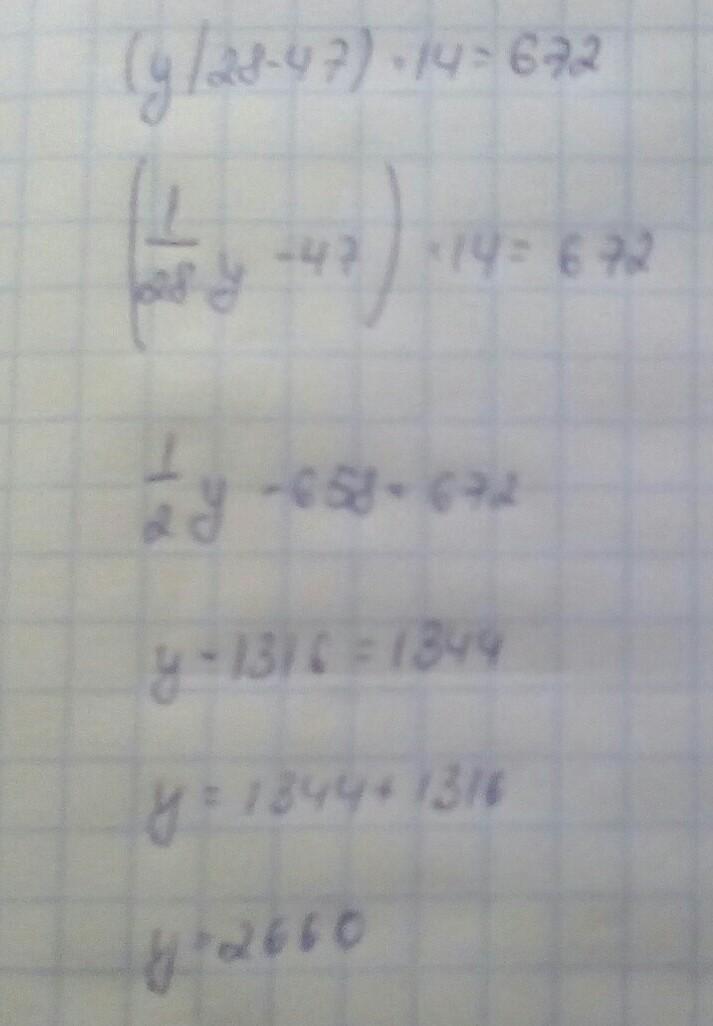 (y/28-47)·14=672
(1/28 y -47)·14= 672
1/2 y -658=672
y-1316=1344
y=1344+1316
y=2660